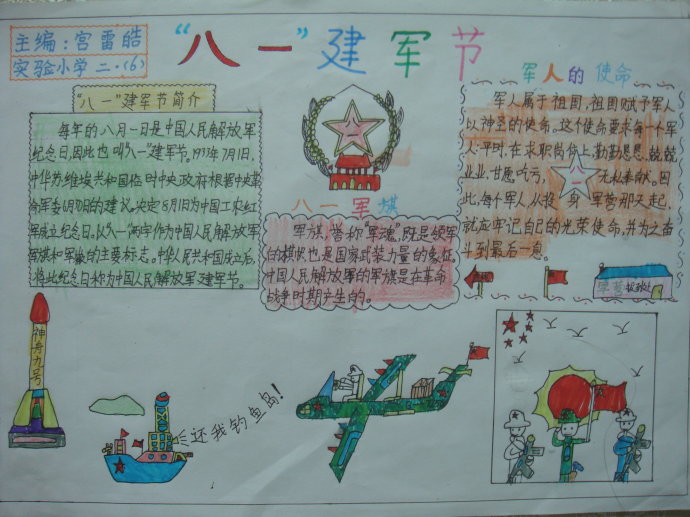 主编：宫雷皓
实验小学 二.(6)
"八一"建军节
"八一"建军节简介
每年的八月一日是中国人民解放军
纪念日,因此也叫"八一"建军节。1933年7月1日,
中华苏维埃共和国临时中央政府根据中央革
命军委6月30日的建议,决定8月1日为中国工农红
军成立纪念日。以"八一"两字作为中国人民解放军
军旗和军徽的主要标志。中华人民共和国成立后,
将此纪念日称为中国人民解放军建军节。
八一
八一军旗
军旗,誉称"军魂",既是领军
的旗帜也是国家武装力量的象征,
中国人民解放军的军旗是在革命
战争时期产生的。
军人的使命
军人属于祖国,祖国赋予军人
以神圣的使命。这个使命要求每一个军
人:平时,在本职岗位上勤勤恳恳、兢兢
业业,甘愿吃亏,无私奉献。因
此,每个军人从投身军营那天起,
就应牢记自己的光荣使命,并为之奋
斗到最后一息。
八一
神舟九号
还我钓鱼岛!